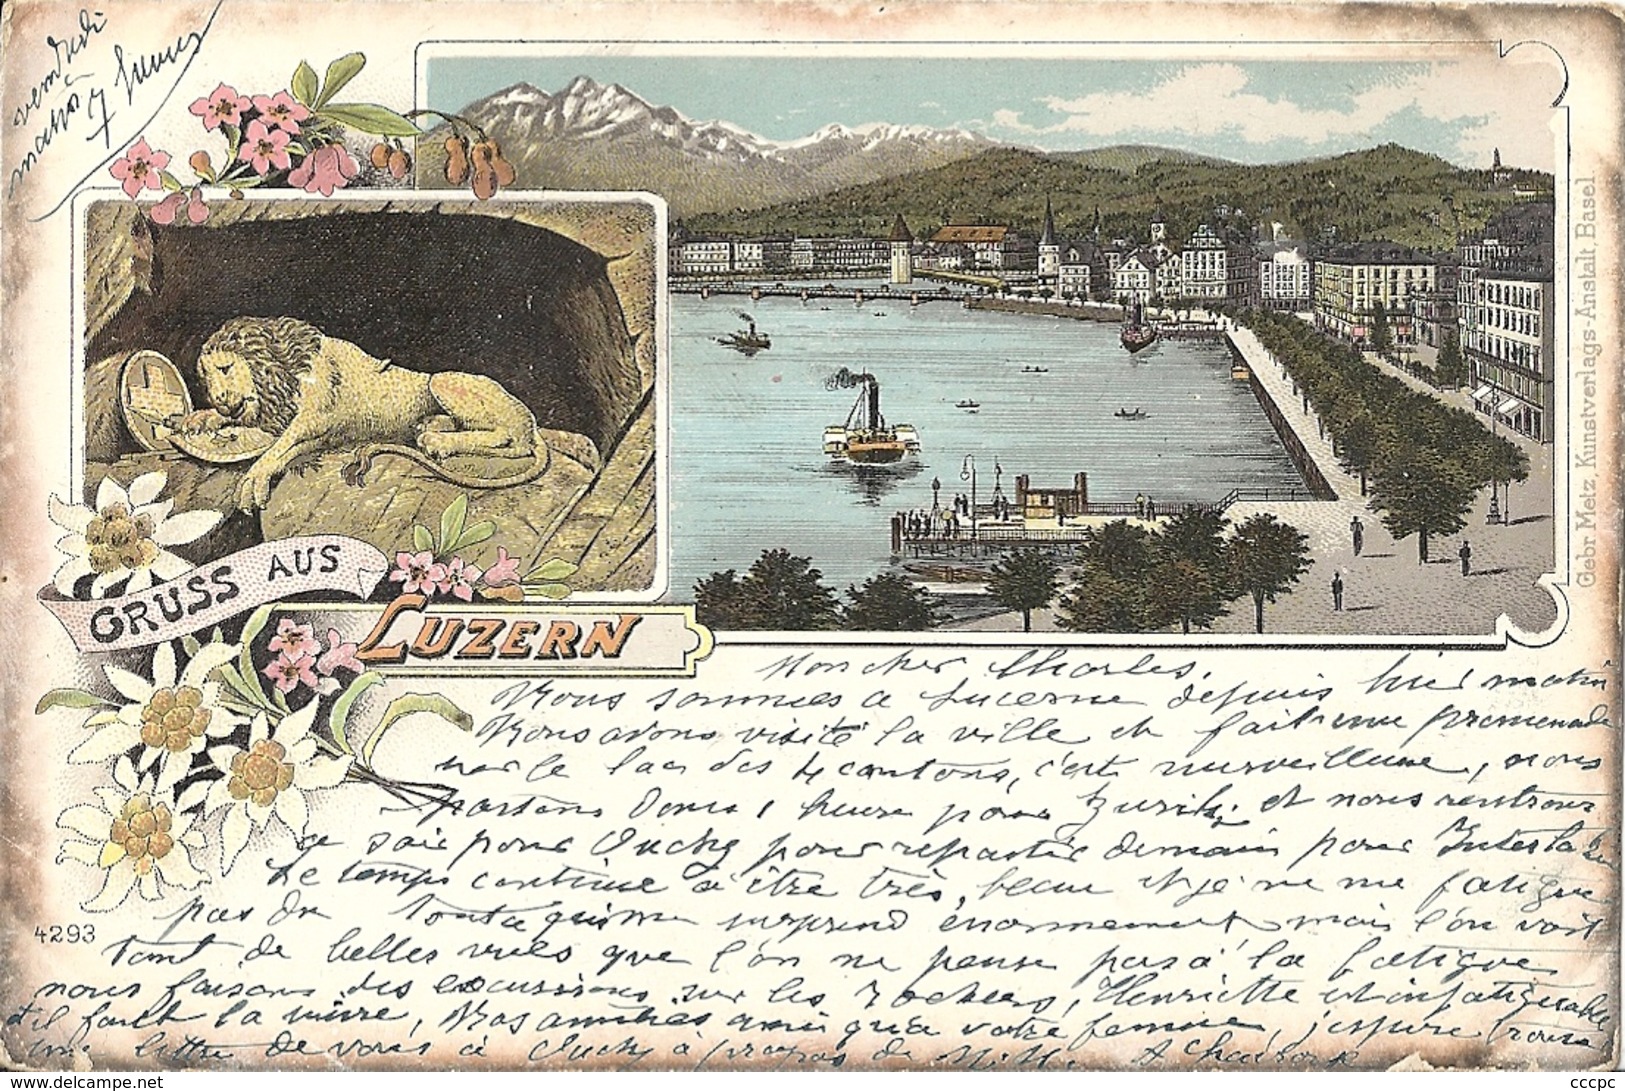 vendredi
matin
7
GRUSS AUS
LUZERN
Gebr Metz, Kunstverlags-Anstalt, Basel
Mon cher Charles,
Nous sommes a Lucerne depuis hier matin
Nous avons visité la ville et fait une promenade
sur le lac des 4 cantons, c'est merveilleuse, nous
partons dans 1 heure pour Zurich et nous rentrons
ce soir pour Ouchy pour repartir demain pour Interlaken
Le temps continue à être très beau et je ne me fatigue
pas du tout ce qui me surprend énormement mais l'on voit
4293
tant de belles vues que l'on ne pense pas à la fatigue
nous faisons des excursions sur les rochers, Henriette est infatiguable
il faut la suivre, Nos amities ainsi qu'a votre femme, j'espère trouver
une lettre de vous à Ouchy à propos de
cccpc